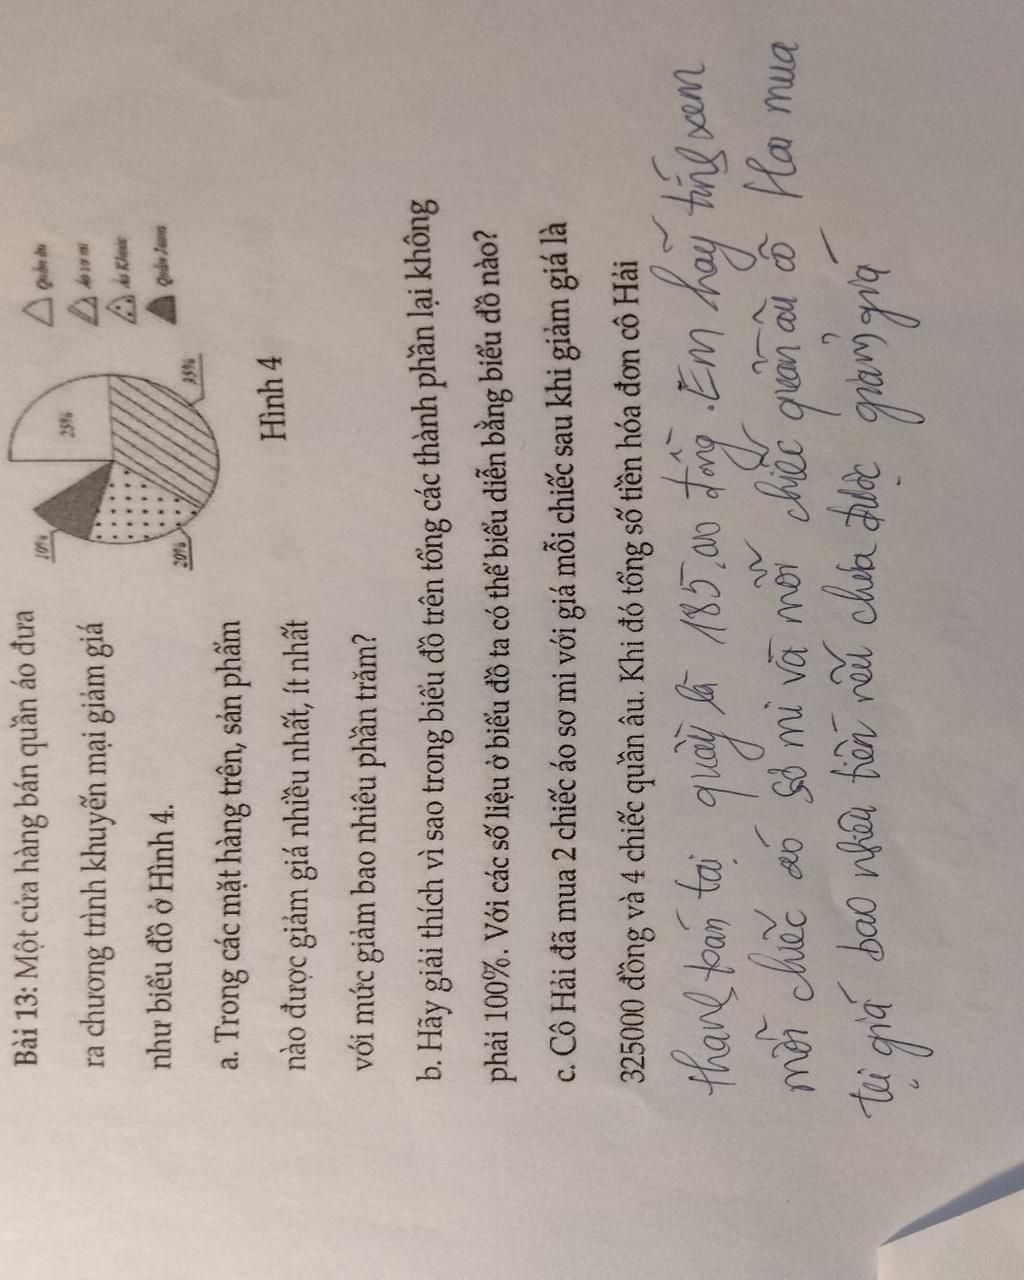 Bài 13: Một cửa hàng bán quần áo đưa
ra chương trình khuyến mại giảm giá
như biểu đồ ở Hình 4.
a. Trong các mặt hàng trên, sản phẩm
nào được giảm giá nhiều nhất, ít nhất
với mức giảm bao nhiêu phần trăm?
10%
25%
20%
35%
Quần âu
Áo sơ mi
Áo Khoác
Quần Jeans
Hình 4
b. Hãy giải thích vì sao trong biểu đồ trên tổng các thành phần lại không
phải 100%. Với các số liệu ở biểu đồ ta có thể biểu diễn bằng biểu đồ nào?
c. Cô Hải đã mua 2 chiếc áo sơ mi với giá mỗi chiếc sau khi giảm giá là
325000 đồng và 4 chiếc quần âu. Khi đó tổng số tiền hóa đơn cô Hải
thanh toán tại quầy là 185.00 đồng. Em hãy tính xem
mỗi chiếc áo sơ mi và mỗi chiếc quần âu cô Hai mua
tại giá bao nhiêu tiền nếu chưa được giảm giá